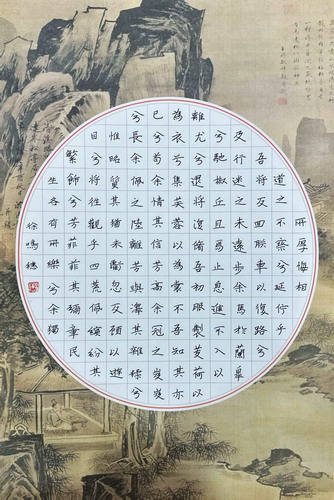 所厚悔相
道之不察兮延佇乎
吾將反回朕車以復路兮
及行迷之未遠步余馬於蘭皋
兮馳椒丘且焉止息進不入以
離尤兮退將復脩吾初服製芰荷以
為衣兮集芙蓉以為裳不吾知其亦
已兮苟余情其信芳高余冠之岌岌
兮長余佩之陸離芳與澤其雜糅兮
惟昭質其猶未虧忽反顧以遊
目兮將往觀乎四荒佩繽紛其
繁飾兮芳菲菲其彌章民
生各有所樂兮余獨
徐鳴穗